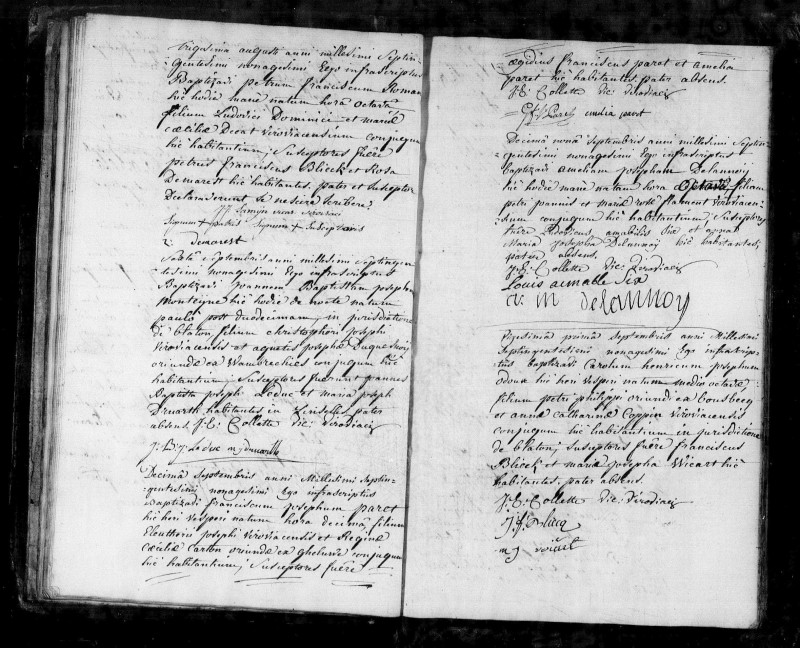 trigesima augusti anni millesimi Septin-
gentesimi nonagesimi Ego infrascriptus
Baptizavi petrum franciscum
hic hodie mane natum hora octava
filium Ludovici Dominici et mariæ
cæciliæ Decat viroviacensium conjugum
hic habitantium; Susceptores fuêre
petrus franciscus Blieck et Rosa
Demarest hic habitantes. pater et Susceptor
Declaraverunt se nescire scribere,
Signum + patris Signum + Susceptoris
r: demarest
Sexta Septembris anni millesimi Septingen-
tesimi nonagesimi Ego infrascriptus
Baptizavi Joannem Baptistam joseph
montaigne hic hodie de nocte natum
paulo post duodecimam, in jurisdictione
de blaton, filium christophori josephi
viroviacensis et agnetis josephæ Duquesnoy
oriundæ ex Wambrechies conjugum hic
habitantium; Susceptores fuerunt joannes
Baptista joseph Leduc et maria joseph
Druarth habitantes in Linselles pater
absens. J: E: Collette vic: viroviaci
J: B: J: Leduc m j druarth
Decima Septembris anni Millesimi Septin-
gentesimi nonagesimi Ego infrascriptus
Baptizavi franciscum josephum parot
hic heri vesperi natum hora decima, filium
Eleutherii josephi viroviacensis et Reginæ
cæciliæ carton oriundæ ex gheluwe conjugum
hic habitantium; Susceptores fuêre
ægidius franciscus parot et amelia
parot hic habitantes. pater absens.
J: E: Collette vic: viroviaci
emilia parot
Decima nona Septembris anni millesimi Septin-
gentesimi nonagesimi Ego infrascriptus
baptizavi ameliam josepham Delannoij
hic hodie mane natam hora octava, filiam
petri joannis et mariæ rosæ flament viroviacen-
sium conjugum hic habitantium, Susceptores
fuêre Ludovicus amabilis Six et anna
Maria josepha Delannoij hic habitantes,
pater absens.
J: E: Collette vic: viroviaci
Louis aimable Six
a: m delannoy
Vigesima prima Septembris anni Millesimi
Septingentesimi nonagesimi Ego infrascrip-
tus baptizavi Carolum henricum josephum
Odoux hic heri vesperi natum media octavæ
filium petri philippi oriundi ex bousbecq
et annæ catharinæ Coppin viroviacensis
conjugum hic habitantium in jurisdictione
de blaton; susceptores fuêre franciscus
Blieck et maria josepha Wicart hic
habitantes. pater absens.
J: E: Collette vic: viroviaci
m j